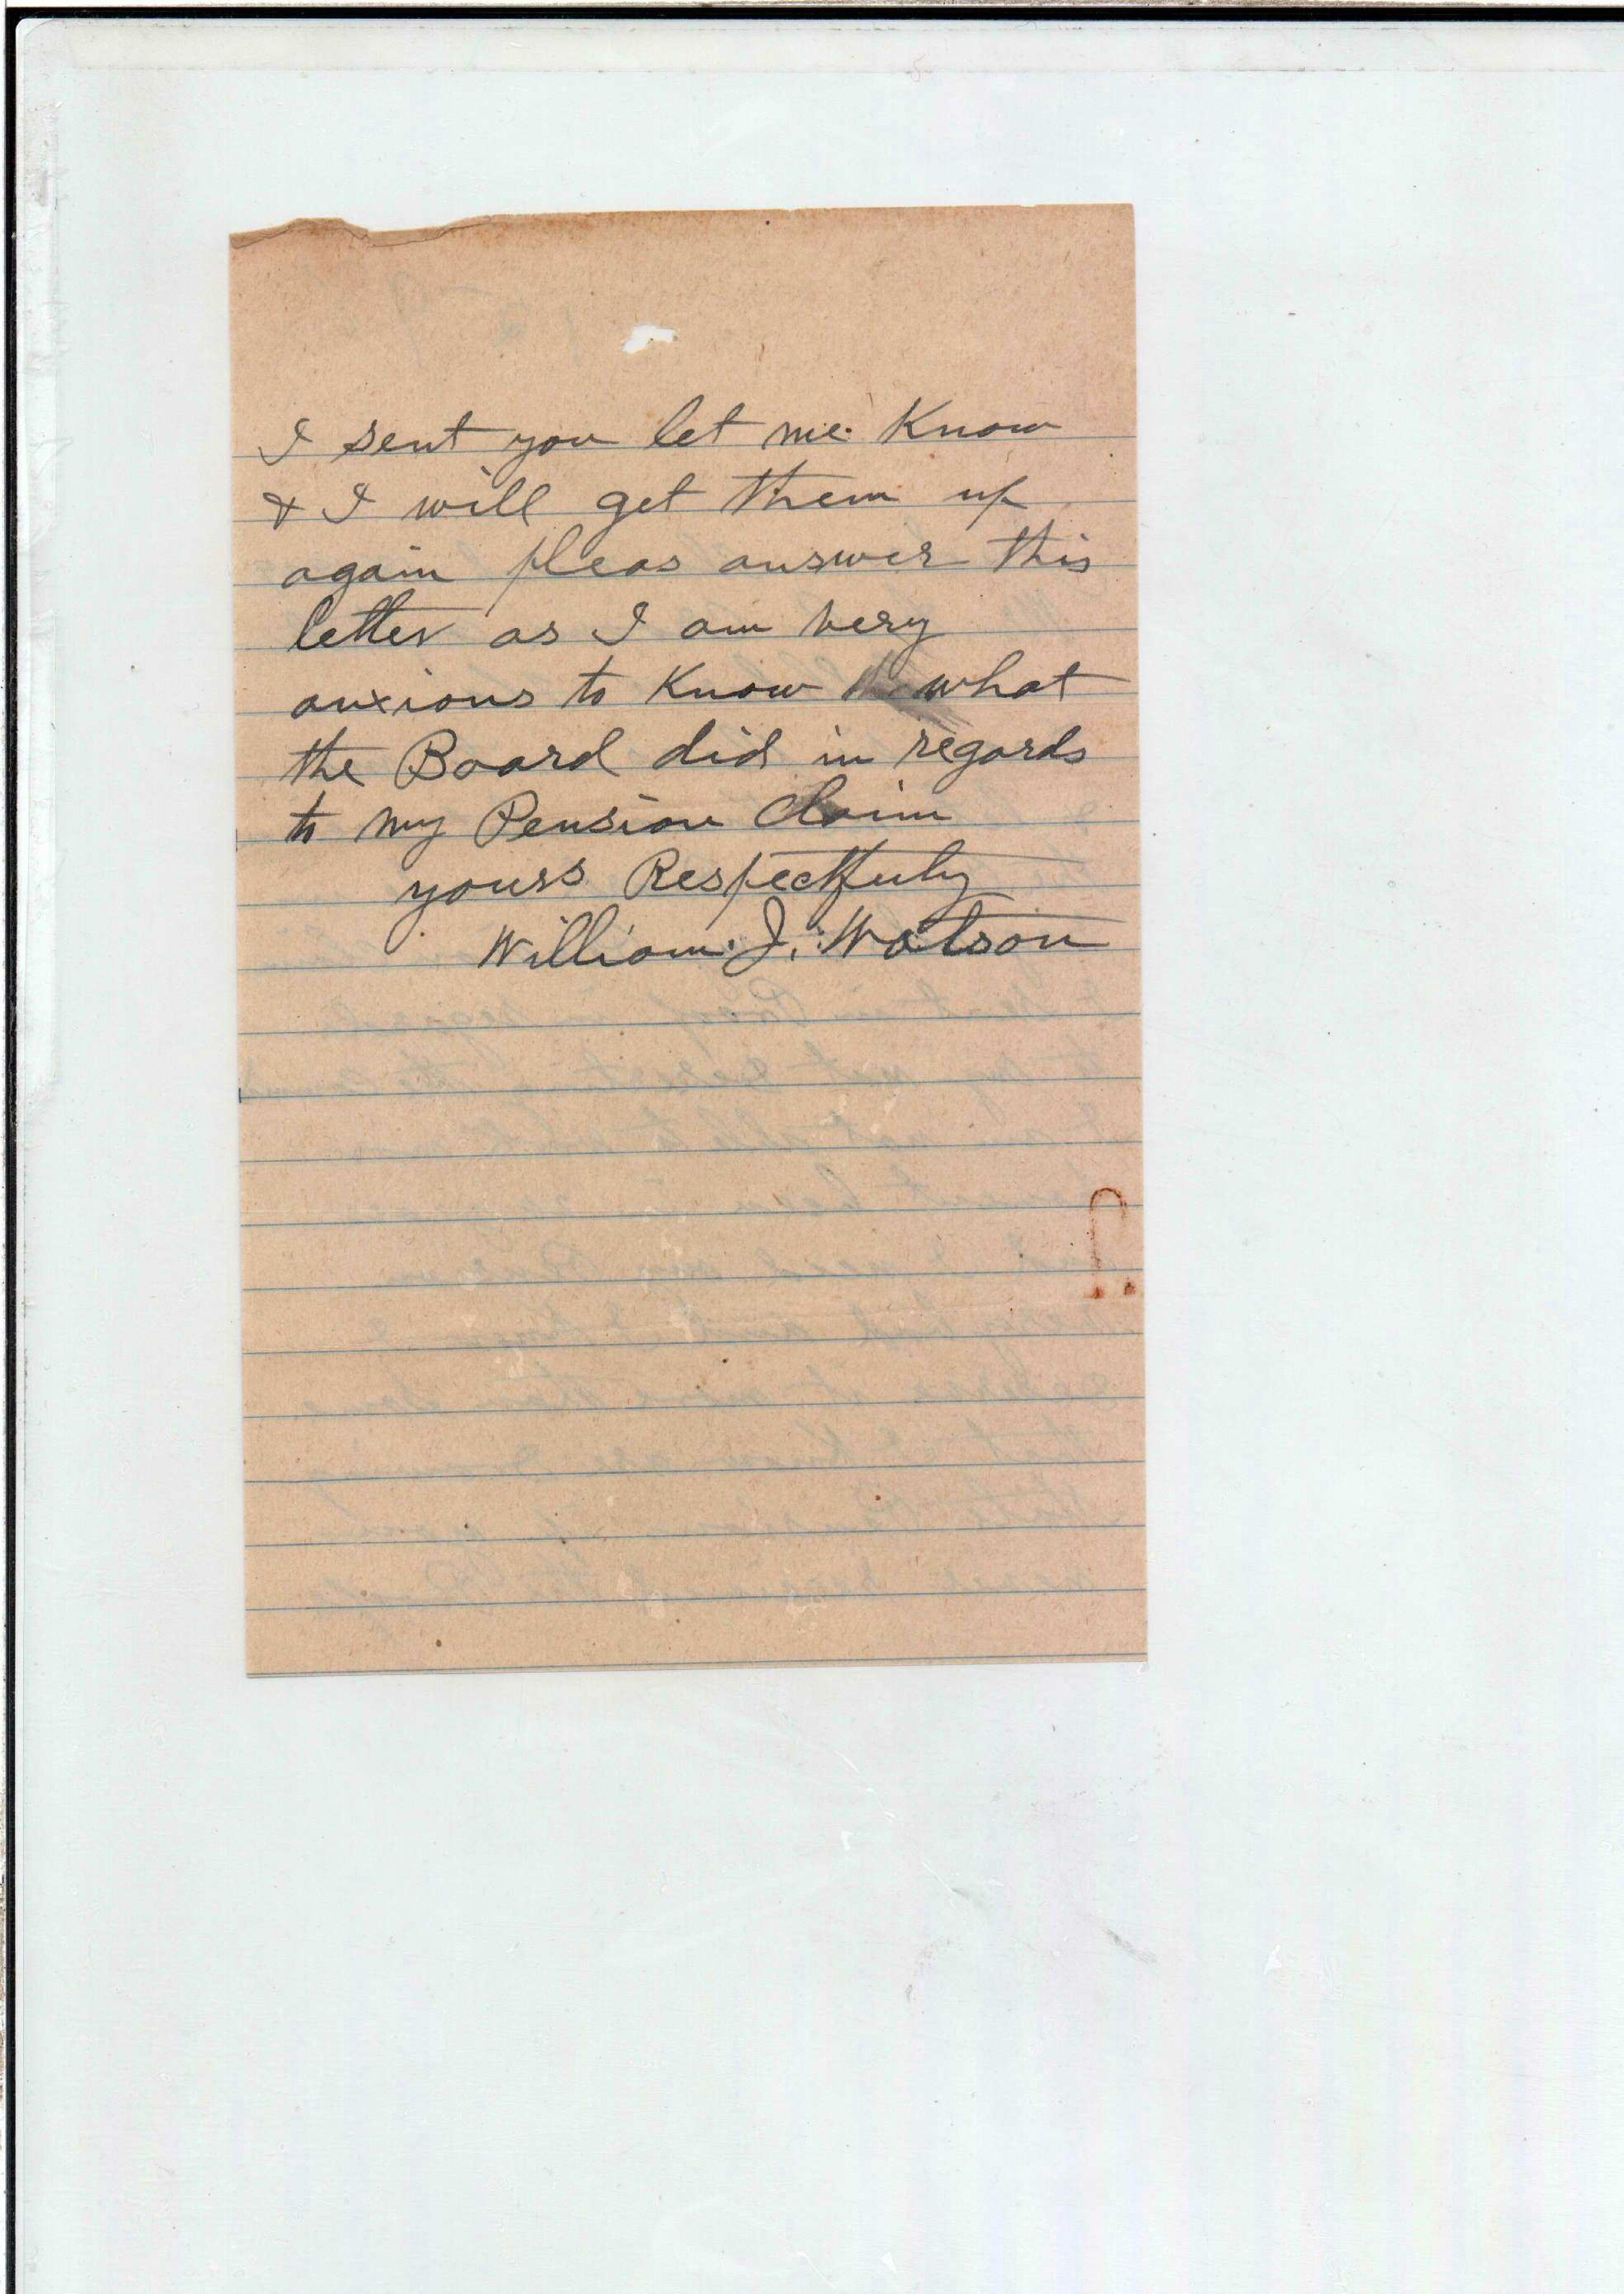 I sent you let me Know
& I will get them up
again pleas answer this
letter as I am very
anxious to Know what
the Board did in regards
to my Pension Claim
yours Respectfuly
William. J. Watson